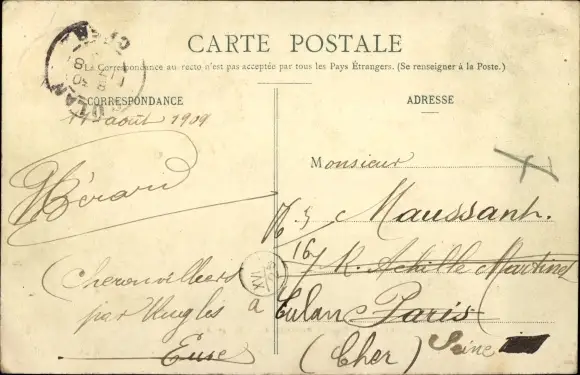 CARTE POSTALE
La Correspondance au recto n'est pas acceptée par tous les Pays Étrangers. (Se renseigner à la Poste.)
CORRESPONDANCE
11 août 1909
Hérard
Cheronvilliers
par Rugles
Eure
ADRESSE
Monsieur
Maussant.
167 R. Achille Martinet
Paris
à Culan
(Cher)
Seine
CULAN
CHER
XVI